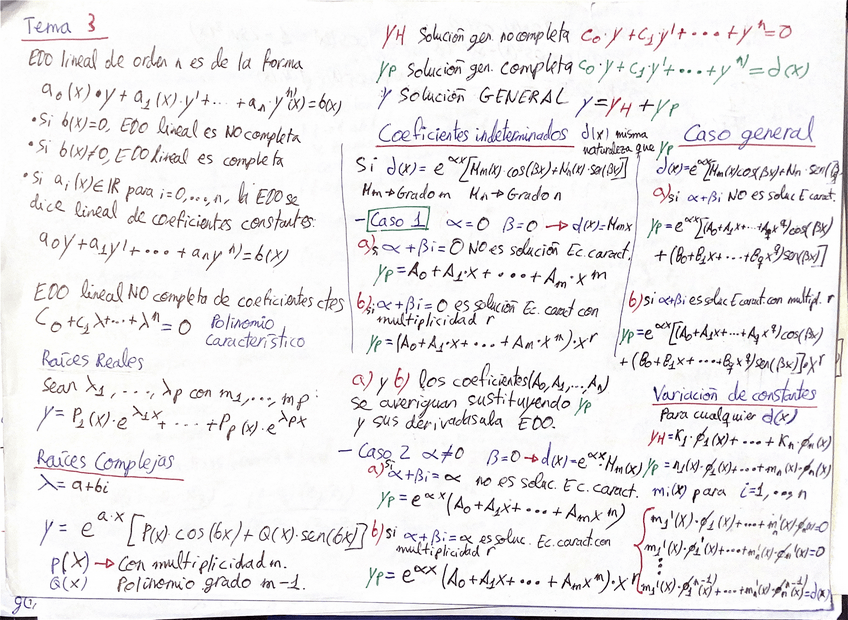 Tema 3
EDO lineal de orden n es de la forma
a₀(x)·y + a₁(x)·y' + ... + aₙ·y⁽ⁿ⁾(x) = b(x)
• Si b(x)=0, EDO lineal es NO completa
• Si b(x)≠0, EDO lineal es completa
• Si aᵢ(x)∈ℝ para i=0,...,n, la EDO se
dice lineal de coeficientes constantes:
a₀y + a₁y' + ... + aₙy⁽ⁿ⁾ = b(x)
EDO lineal NO completa de coeficientes ctes
C₀ + C₁λ + ... + λⁿ = 0 Polinomio
Característico
Raíces Reales
Sean λ₁, ..., λp con m₁, ..., mp:
y = P₁(x)·e^λ₁x + ... + Pp(x)·e^λpx
Raíces Complejas
λ = a+bi
y = e^a·x [P(x)·cos(bx) + Q(x)·sen(bx)]
P(x) → Con multiplicidad m.
Q(x) Polinomio grado m-1.
yH solución gen. no completa C₀·y + C₁y' + ... + yⁿ⁾ = 0
yp solución gen. completa C₀·y + C₁·y' + ... + yⁿ⁾ = d(x)
y solución GENERAL y = yH + yp
Coeficientes indeterminados d(x) misma
naturaleza que yp
Si d(x) = e^αx [Mm(x) cos(βx) + Nn(x)·sen(βx)]
Mm → Grado m Nn → Grado n
- Caso 1 α=0 β=0 → d(x)=Mmx
a) si α+βi=0 NO es solución Ec. caract.
yp = A₀ + A₁·x + ... + Am·x^m
b) si α+βi=0 es solución Ec. caract con
multiplicidad r
yp = (A₀ + A₁·x + ... + Am·x^m)·x^r
a) y b) los coeficientes (A₀, A₁, ..., An)
se averiguan sustituyendo yp
y sus derivadas a la EDO.
- Caso 2 α≠0 β=0 → d(x)=e^αx·Mm(x)
a) si α+βi=α no es soluc. Ec. caract.
yp = e^αx (A₀ + A₁x + ... + Amx^m)
b) si α+βi=α es soluc. Ec. caract con
multiplicidad r
yp = e^αx (A₀ + A₁x + ... + Amx^m)·x^r
Caso general
d(x)=e^αx[Mm(x)cos(βx)+Nn·sen(β
a) si α+βi NO es soluc E caract.
yp = e^αx[(A₀+A₁x+...+Aqx^q)cos(βx)
+ (B₀+B₁x+...+Bqx^q)sen(βx)]
b) si α+βi es soluc E caract. con multipl. r
yp = e^αx[(A₀+A₁x+...+Aqx^q)cos(βx)
+ (B₀+B₁x+...+Bqx^q)sen(βx)]·x^r
Variación de constantes
Para cualquier d(x)
yH = K₁·ϕ₁(x) + ... + Kn·ϕn(x)
yp = m₁(x)·ϕ₁(x) + ... + mn(x)·ϕn(x)
mi(x) para i=1,...,n
m₁'(x)·ϕ₁(x) + ... + mn'(x)·ϕn(x)=0
m₁'(x)·ϕ₁'(x) + ... + mn'(x)·ϕn'(x)=0
⋮
m₁'(x)·ϕ₁⁽ⁿ⁻¹⁾(x) + ... + mn'(x)·ϕn⁽ⁿ⁻¹⁾(x)=d(x)